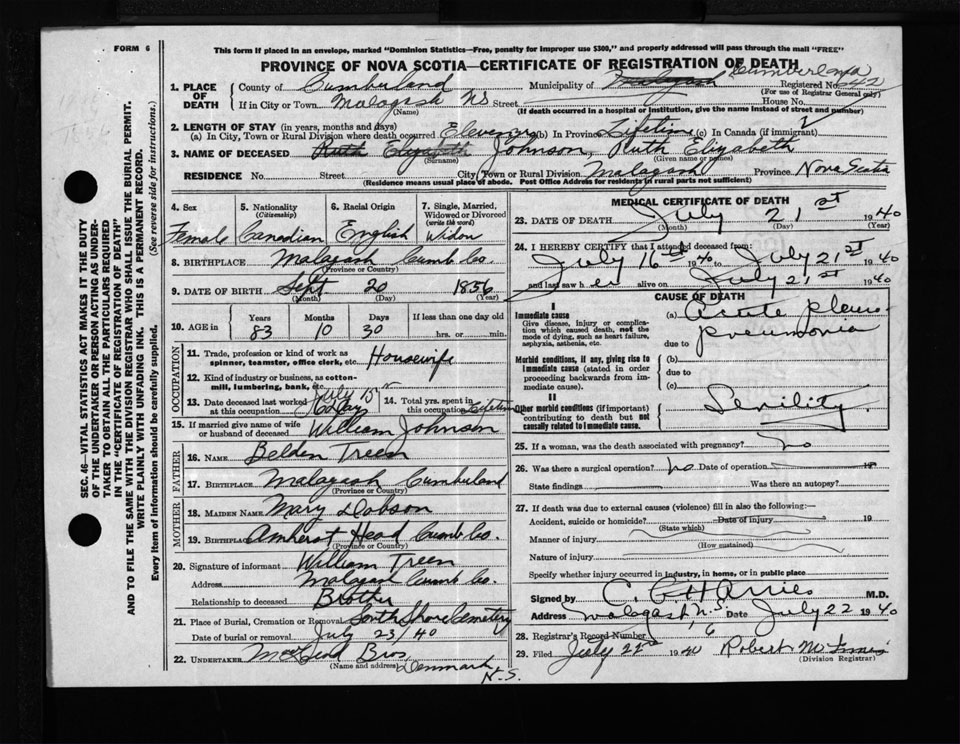 FORM 6
This form if placed in an envelope, marked "Dominion Statistics—Free, penalty for improper use $300," and properly addressed will pass through the mail "FREE"
PROVINCE OF NOVA SCOTIA—CERTIFICATE OF REGISTRATION OF DEATH
1. PLACE OF DEATH
County of Cumberland Municipality of Malagash Cumberland Registered No. 642
(For use of Registrar General only)
If in City or Town Malagash NS Street House No.
(Name) (If death occurred in a hospital or institution, give the name instead of street and number)
2. LENGTH OF STAY (in years, months and days)
(a) In City, Town or Rural Division where death occurred (b) In Province Lifetime (c) In Canada (if immigrant)
3. NAME OF DECEASED Ruth Elizabeth Johnson, Ruth Elizabeth
(Surname) (Given name or names)
RESIDENCE No. Street City, Town or Rural Division Malagash Province Nova Scotia
(Residence means usual place of abode. Post Office Address for residents in rural parts not sufficient)
4. Sex Female
5. Nationality (Citizenship) Canadian
6. Racial Origin English
7. Single, Married, Widowed or Divorced (write the word) Widow
8. BIRTHPLACE Malagash Cumb Co.
(Province or Country)
9. DATE OF BIRTH Sept 20 1856
(Month) (Day) (Year)
10. AGE in Years 83 Months 10 Days 30 If less than one day old hrs. or min.
OCCUPATION
11. Trade, profession or kind of work as spinner, teamster, office clerk, etc. Housewife
12. Kind of industry or business, as cotton-mill, lumbering, bank, etc.
13. Date deceased last worked at this occupation July 15th
14. Total yrs. spent in this occupation Lifetime
15. If married give name of wife or husband of deceased William Johnson
FATHER
16. Name Belden Treen
17. Birthplace Malagash Cumberland
(Province or Country)
MOTHER
18. Maiden Name Mary Dobson
19. Birthplace Amherst Head Cumb. Co.
(Province or Country)
20. Signature of informant William Treen
Address Malagash Cumb Co.
Relationship to deceased Brother
21. Place of Burial, Cremation or Removal South Shore Cemetery
Date of burial or removal July 23/40
22. UNDERTAKER MacLeod Bros
(Name and address) Denmark
N.S.
MEDICAL CERTIFICATE OF DEATH
23. DATE OF DEATH July 21st 1940
(Month) (Day) (Year)
24. I HEREBY CERTIFY that I attended deceased from:
July 16th 1940 to July 21st 1940
and last saw her alive on July 21st 1940
CAUSE OF DEATH
I
Immediate cause
Give disease, injury or complication which caused death, not the mode of dying, such as heart failure, asphyxia, asthenia, etc.
(a) Acute pleuro
pneumonia
due to
Morbid conditions, if any, giving rise to immediate cause (stated in order proceeding backwards from immediate cause).
(b)
due to
(c)
II
Other morbid conditions (if important) contributing to death but not causally related to immediate cause.
Senility.
25. If a woman, was the death associated with pregnancy? no
26. Was there a surgical operation? no Date of operation 19
State findings Was there an autopsy?
27. If death was due to external causes (violence) fill in also the following:
Accident, suicide or homicide? Date of injury 19
(State which)
Manner of injury
(How sustained)
Nature of injury
Specify whether injury occurred in industry, in home, or in public place
Signed by M.D.
Address Malagash, N.S. Date July 22 1940
28. Registrar's Record Number 6
29. Filed July 22nd 1940 Robert
(Division Registrar)
SEC. 46—VITAL STATISTICS ACT MAKES IT THE DUTY
OF THE UNDERTAKER OR PERSON ACTING AS UNDER-
TAKER TO OBTAIN ALL THE PARTICULARS REQUIRED
IN THE "CERTIFICATE OF REGISTRATION OF DEATH"
AND TO FILE THE SAME WITH THE DIVISION REGISTRAR WHO SHALL ISSUE THE BURIAL PERMIT.
WRITE PLAINLY WITH UNFADING INK. THIS IS A PERMANENT RECORD.
Every item of information should be carefully supplied. (See reverse side for instructions.)